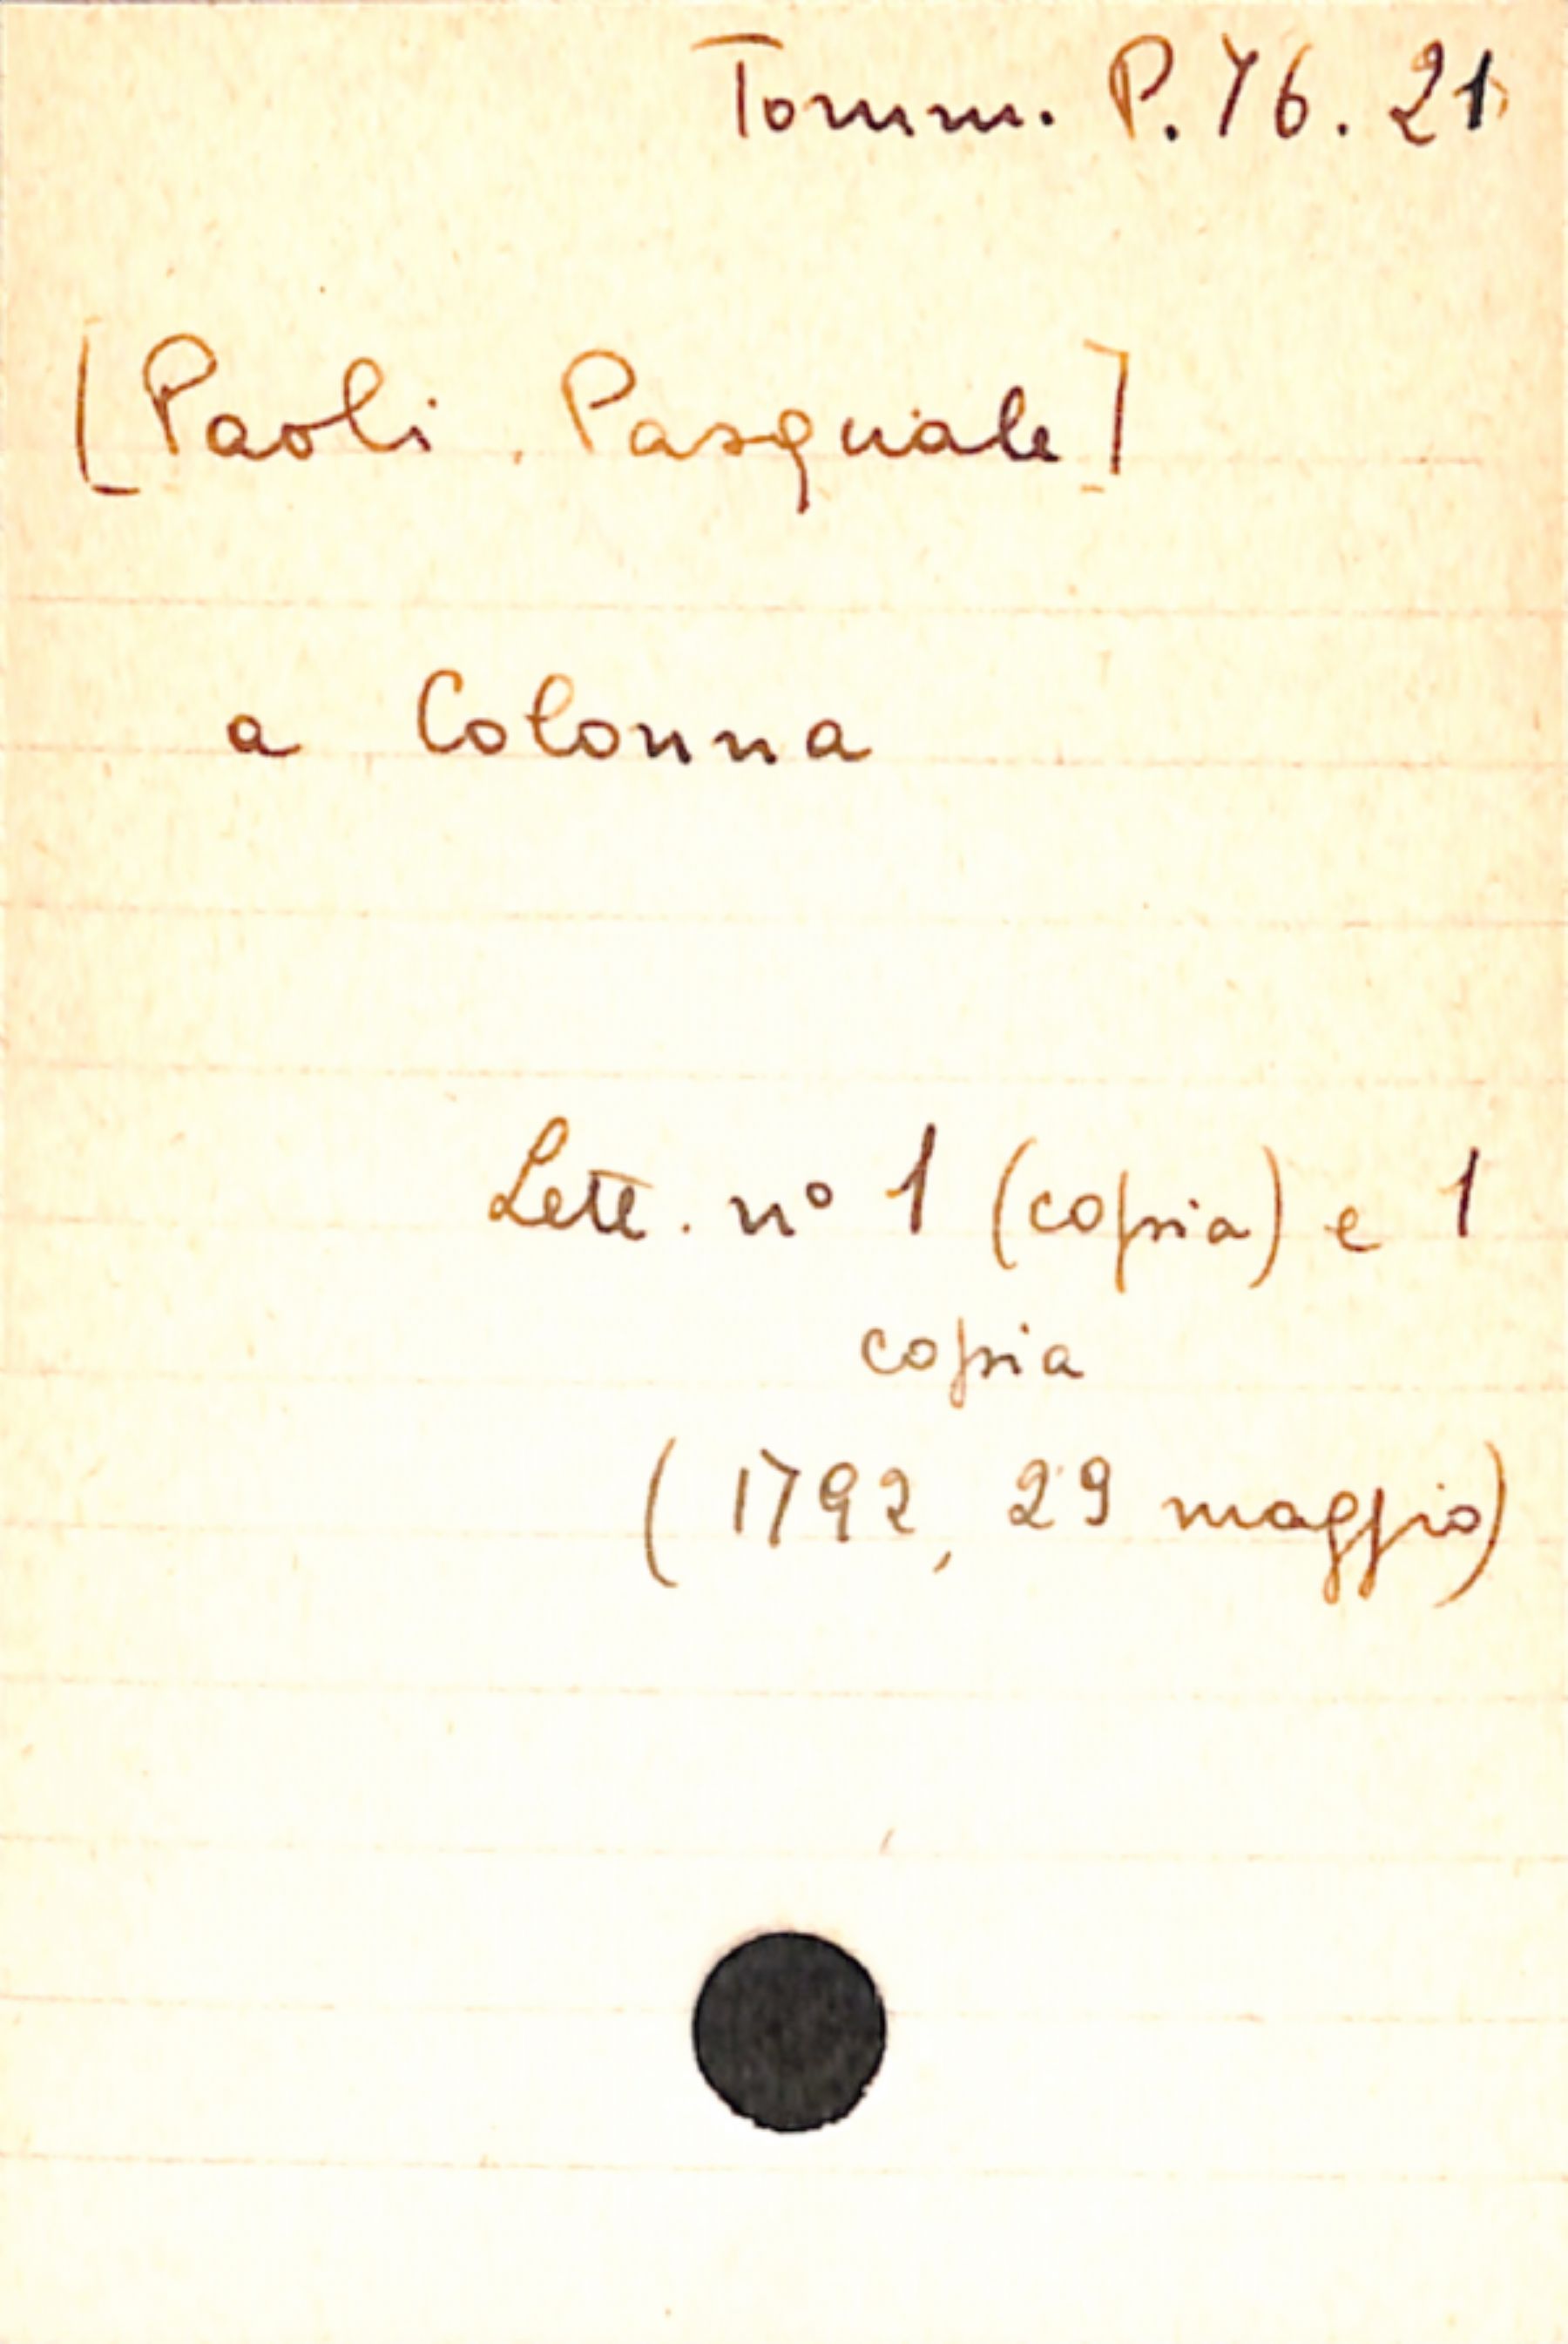 Tomm. P. 76. 21
[Paoli, Pasquale]
a Colonna
Lett. n° 1 (copia) e 1
copia
(1792, 29 maggio)